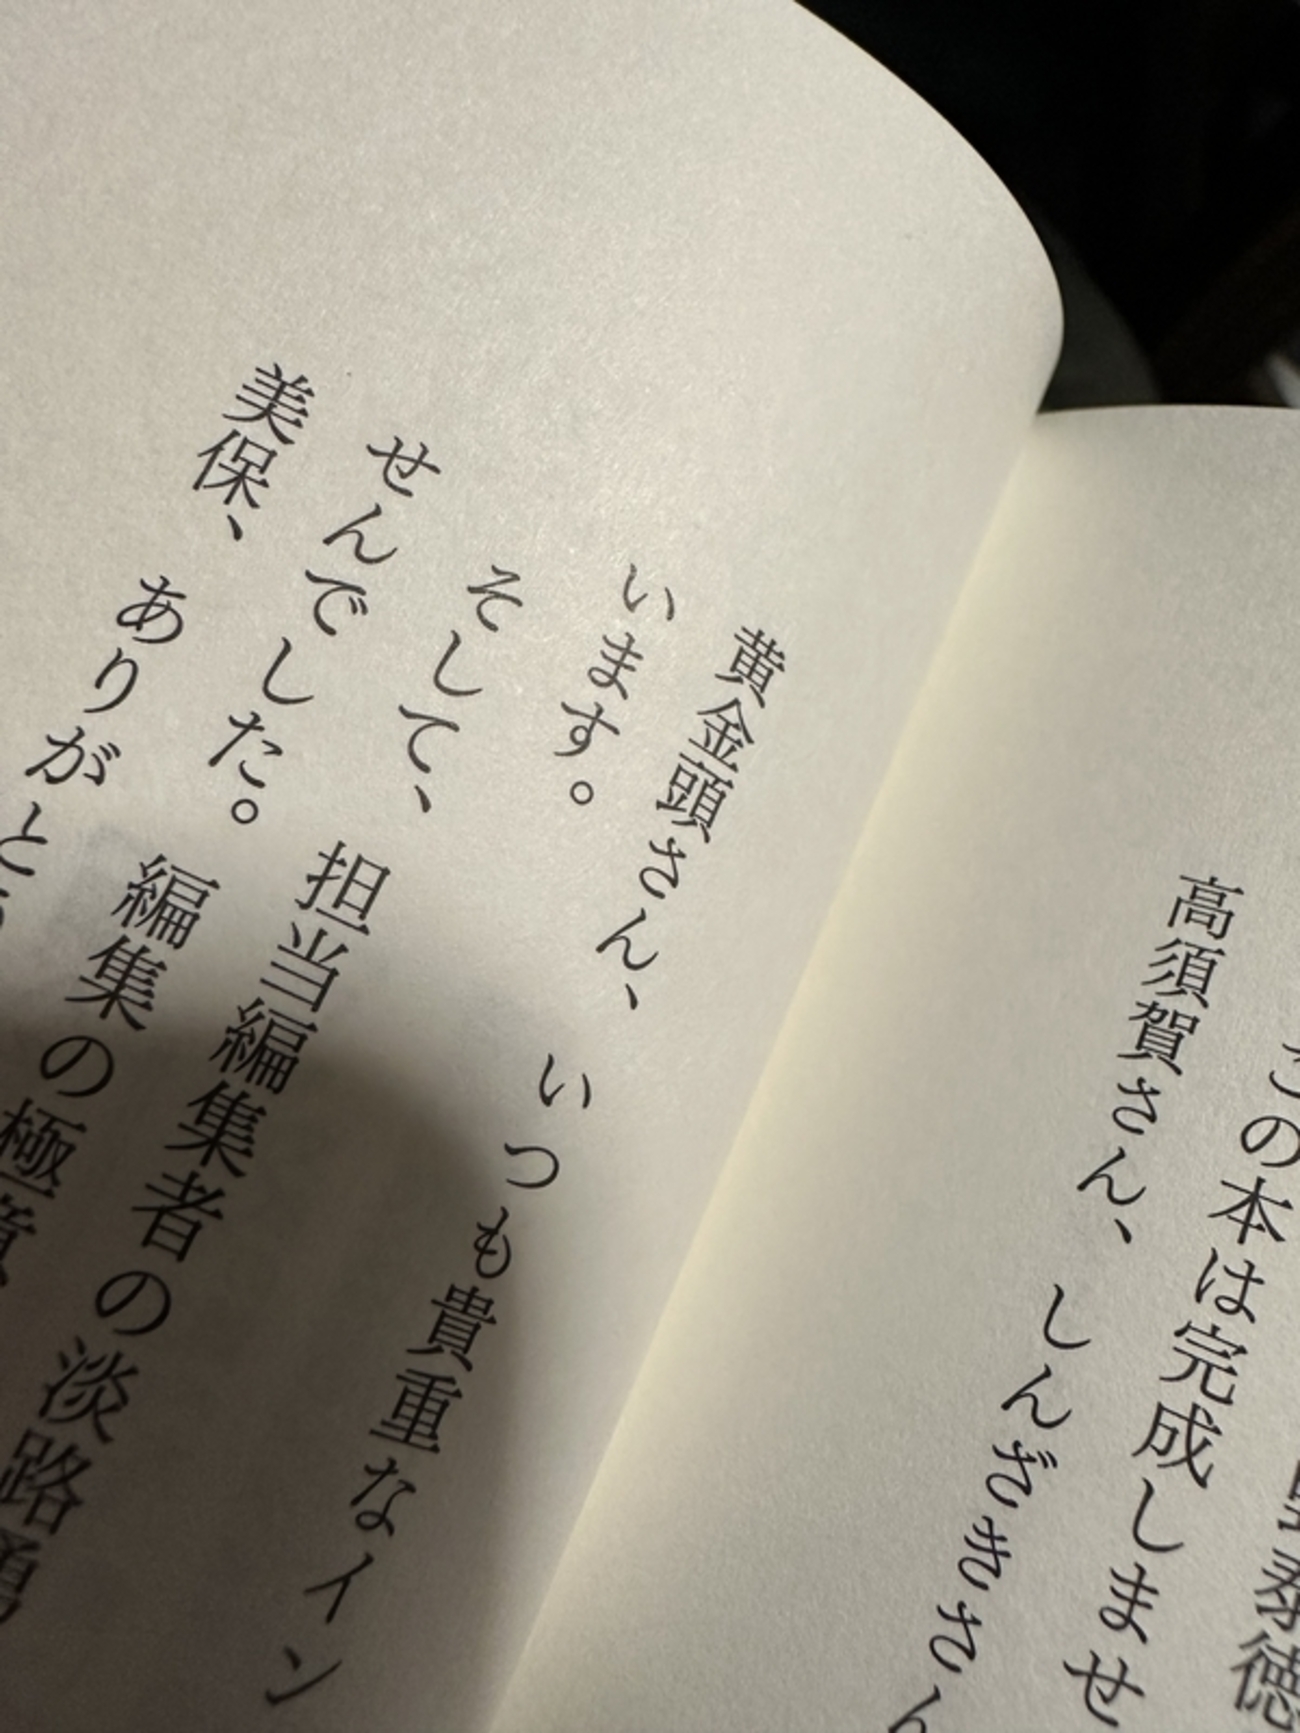 泰徳
の本は完成しませ
高須賀さん、しんざきさん
黄金頭さん、いつも貴重なイン
います。
そして、担当編集者の淡路勇
せんでした。編集の極意、
美保、ありがとう